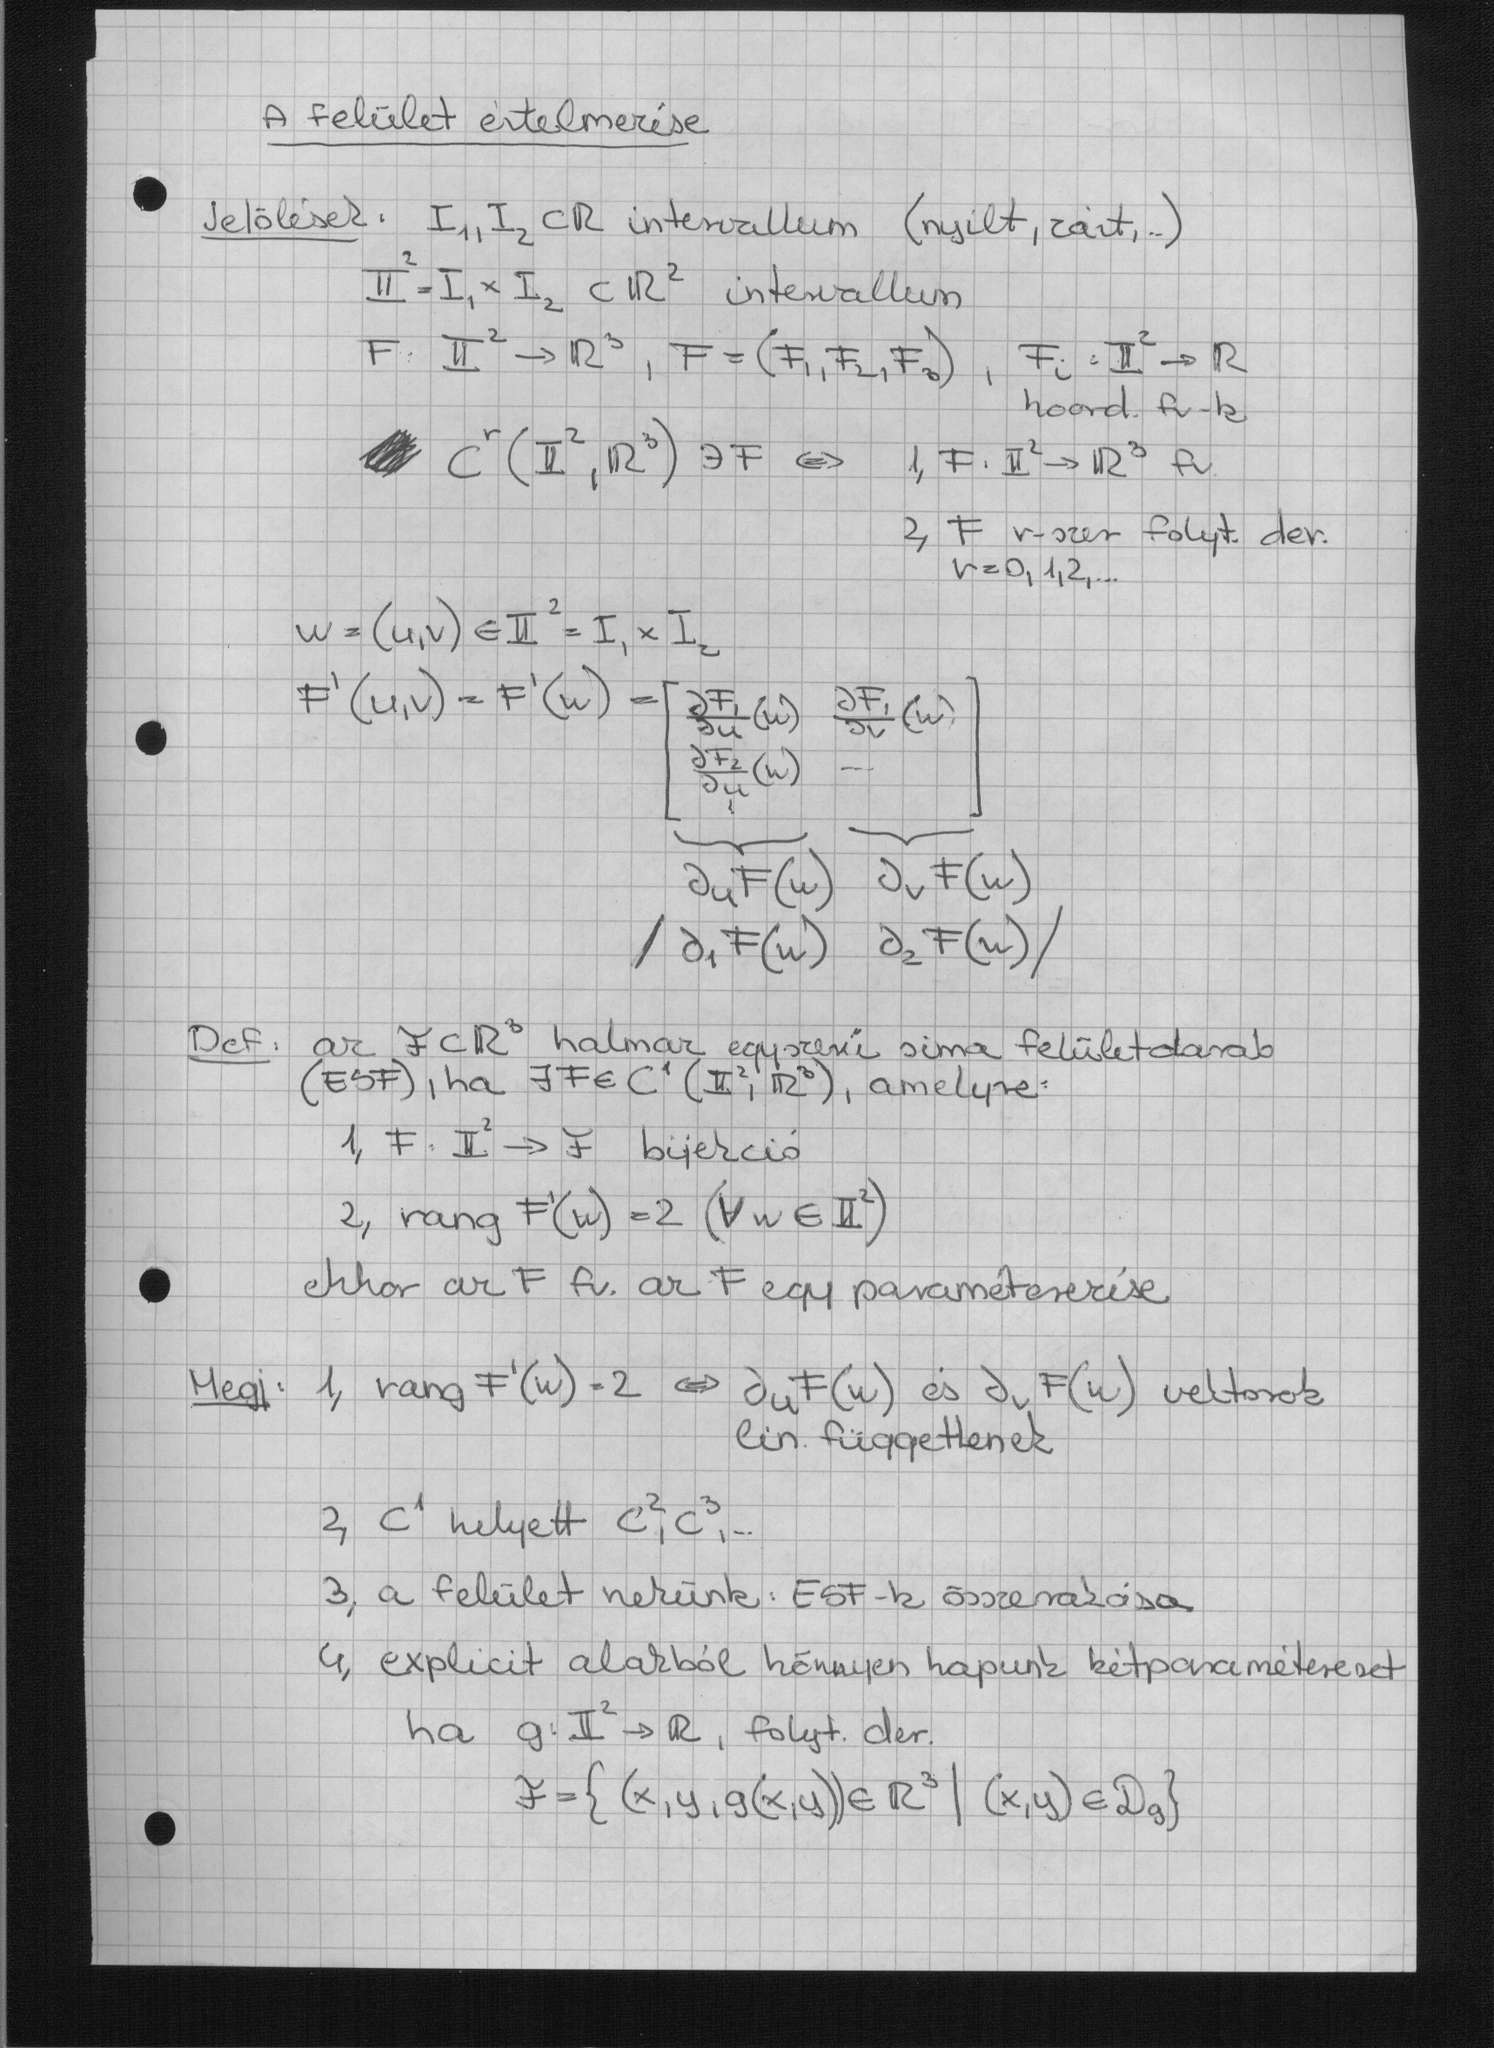 A felület értelmezése
Jelölések: I₁, I₂ ⊂ ℝ intervallum (nyílt, zárt, ..)
𝕀² = I₁ × I₂ ⊂ ℝ² intervallum
F: 𝕀² → ℝ³, F = (F₁, F₂, F₃), Fᵢ: 𝕀² → ℝ
koord. fv-k
Cʳ(𝕀², ℝ³) ∋ F ⇔ 1, F: 𝕀² → ℝ³ fv.
2, F r-szer folyt. der.
r = 0, 1, 2, ...
w = (u, v) ∈ 𝕀² = I₁ × I₂
F'(u,v) = F'(w) = [ ∂F₁/∂u (w) ∂F₁/∂v (w)
∂F₂/∂u (w) ...
⋮ ]
∂ᵤF(w) ∂ᵥF(w)
/ ∂₁F(w) ∂₂F(w) /
Def: az ℱ ⊂ ℝ³ halmaz egyszerű sima felületdarab
(ESF), ha ∃ F ∈ C¹(𝕀², ℝ³), amelyre:
1, F: 𝕀² → ℱ bijekció
2, rang F'(w) = 2 (∀ w ∈ 𝕀²)
ekkor az F fv. az F egy paraméterezése
Megj: 1, rang F'(w) = 2 ⇔ ∂ᵤF(w) és ∂ᵥF(w) vektorok
lin. függetlenek
2, C¹ helyett C², C³, ..
3, a felület nekünk: ESF-k összerakása
4, explicit alakból könnyen kapunk kétparamétereset
ha g: 𝕀² → ℝ, folyt. der.
ℱ = { (x, y, g(x,y)) ∈ ℝ³ | (x,y) ∈ 𝒟g }